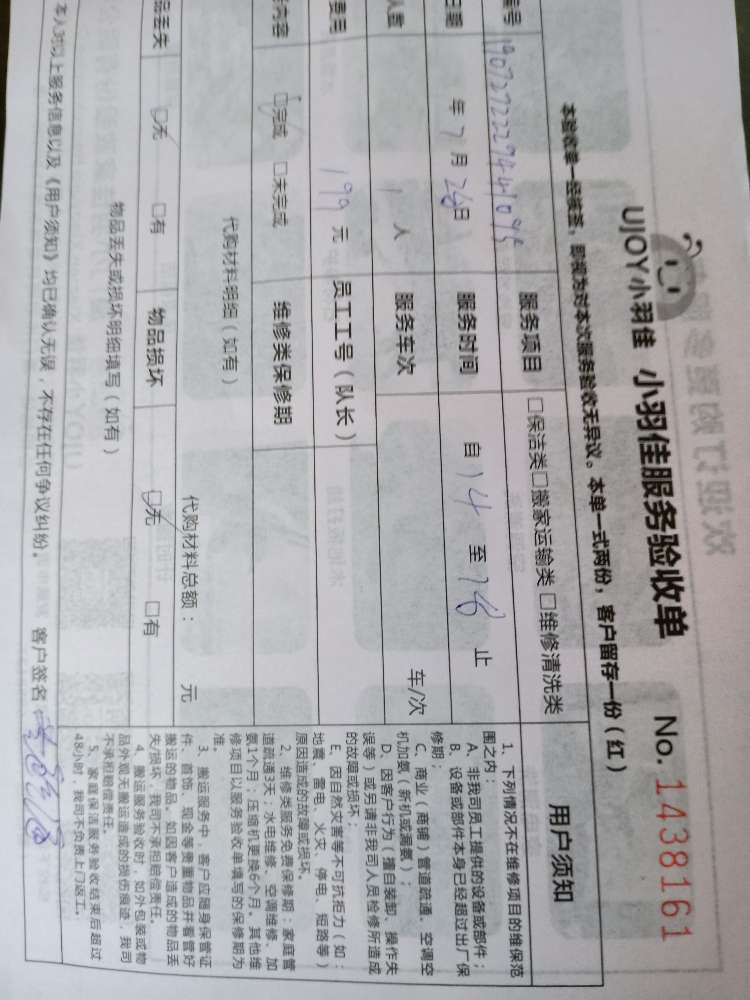 UJOY小羽佳 小羽佳服务验收单 No.1438161
本验收单一经签签，即视为对本次服务验收无异议。本单一式两份，客户留存一份（红）
编号 服务项目 □保洁类□搬家运输类 □维修清洗类
日期 年7月26日 服务时间 自14至16止
人数 1人 服务车次 车/次
费用 199元 员工工号（队长）
内容 □完成 □未完成 维修类保修期
代购材料明细（如有） 代购材料总额： 元
品丢失 □无 □有 物品损坏 □无 □有
物品丢失或损坏明细填写（如有）
本人对以上服务信息以及《用户须知》均已确认无误，不存在任何争议纠纷。 客户签名：
用户须知
1、下列情况不在维修项目的维保范
围之内：
A、非我司员工提供的设备或部件；
B、设备或部件本身已经超过出厂保
修期；
C、商业（商铺）管道疏通、空调空
机加氨（新机或漏氨）；
D、因客户行为（擅自装卸、操作失
误等）或另请非我司人员检修所造成
的故障或损坏；
E、因自然灾害等不可抗拒力（如：
地震、雷电、火灾、停电、短路等）
原因造成的故障或损坏。
2、维修类服务免费保修期：家庭管
道疏通3天；水电维修、空调维修、加
氨1个月；压缩机更换6个月。其他维
修项目以服务验收单填写的保修期为
准。
3、搬运服务中，客户应随身保管证
件、首饰、现金等贵重物品并看管好
搬运的物品，如因客户造成的物品丢
失/损坏，我司不承担赔偿责任
4、搬运服务验收时，如外包装或物
品外观无搬运造成的损伤痕迹，我司
不承担赔偿责任。
5、家庭保洁服务验收结束后超过
48小时，我司不负责上门返工。